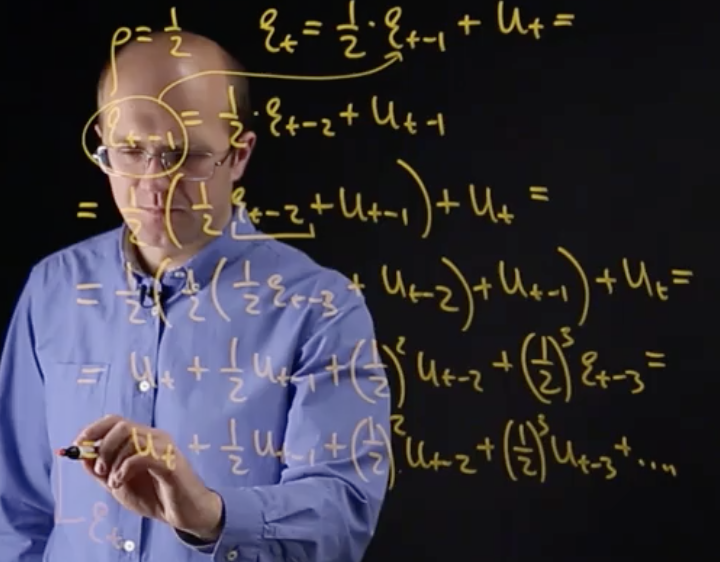 ρ = 1/2   ε_t = 1/2 · ε_{t-1} + u_t =
ε_{t-1} = 1/2 · ε_{t-2} + u_{t-1}
= 1/2 (1/2 ε_{t-2} + u_{t-1}) + u_t =
= 1/2 (1/2 (1/2 ε_{t-3} + u_{t-2}) + u_{t-1}) + u_t =
= u_t + 1/2 u_{t-1} + (1/2)^2 u_{t-2} + (1/2)^3 ε_{t-3} =
= u_t + 1/2 u_{t-1} + (1/2)^2 u_{t-2} + (1/2)^3 u_{t-3} + ...
ε_t